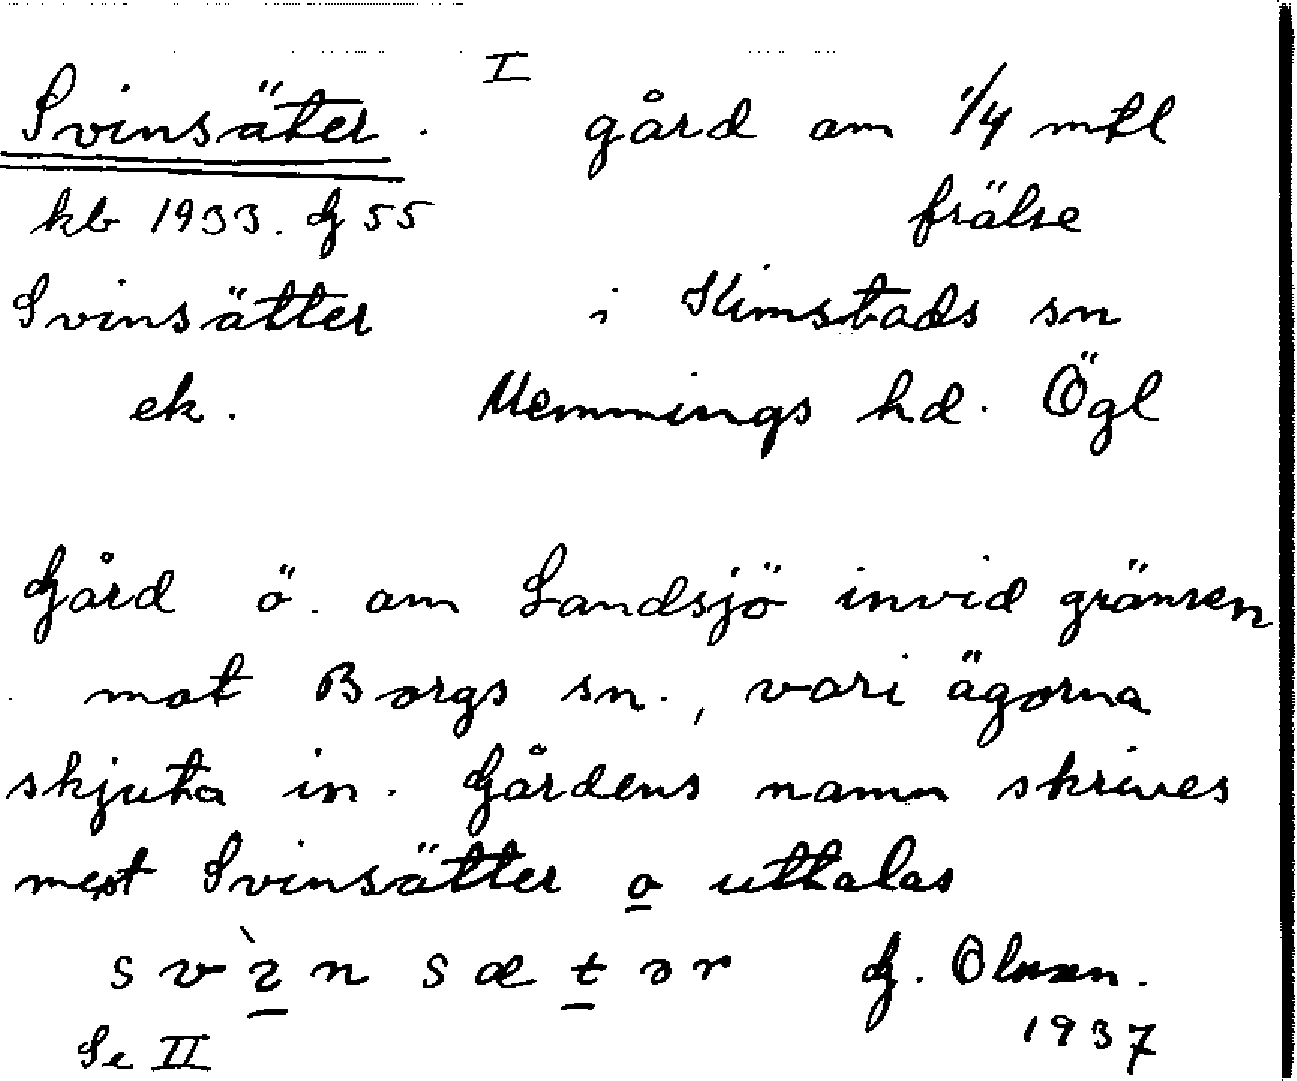 I
Svinsäter. gård om 1/4 mtl
kb 1933. G 55 frälse
Svinsätter i Kimstads sn
ek. Memmings hd. Ögl
Gård ö. om Landsjö invid gränsen
mot Borgs sn., vari ägorna
skjuta in. Gårdens namn skrives
mest Svinsätter o uttalas
svìn sætər G. Olsson.
Se II 1937